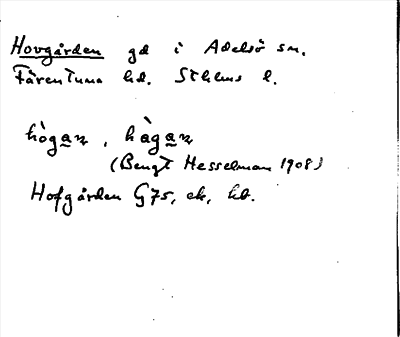 Hovgården gd i Adelsö sn.
Färentuna hd. Sthlms l.
hògan, hàgan
(Bengt Hesselman 1908)
Hofgården G75, ek, hb.